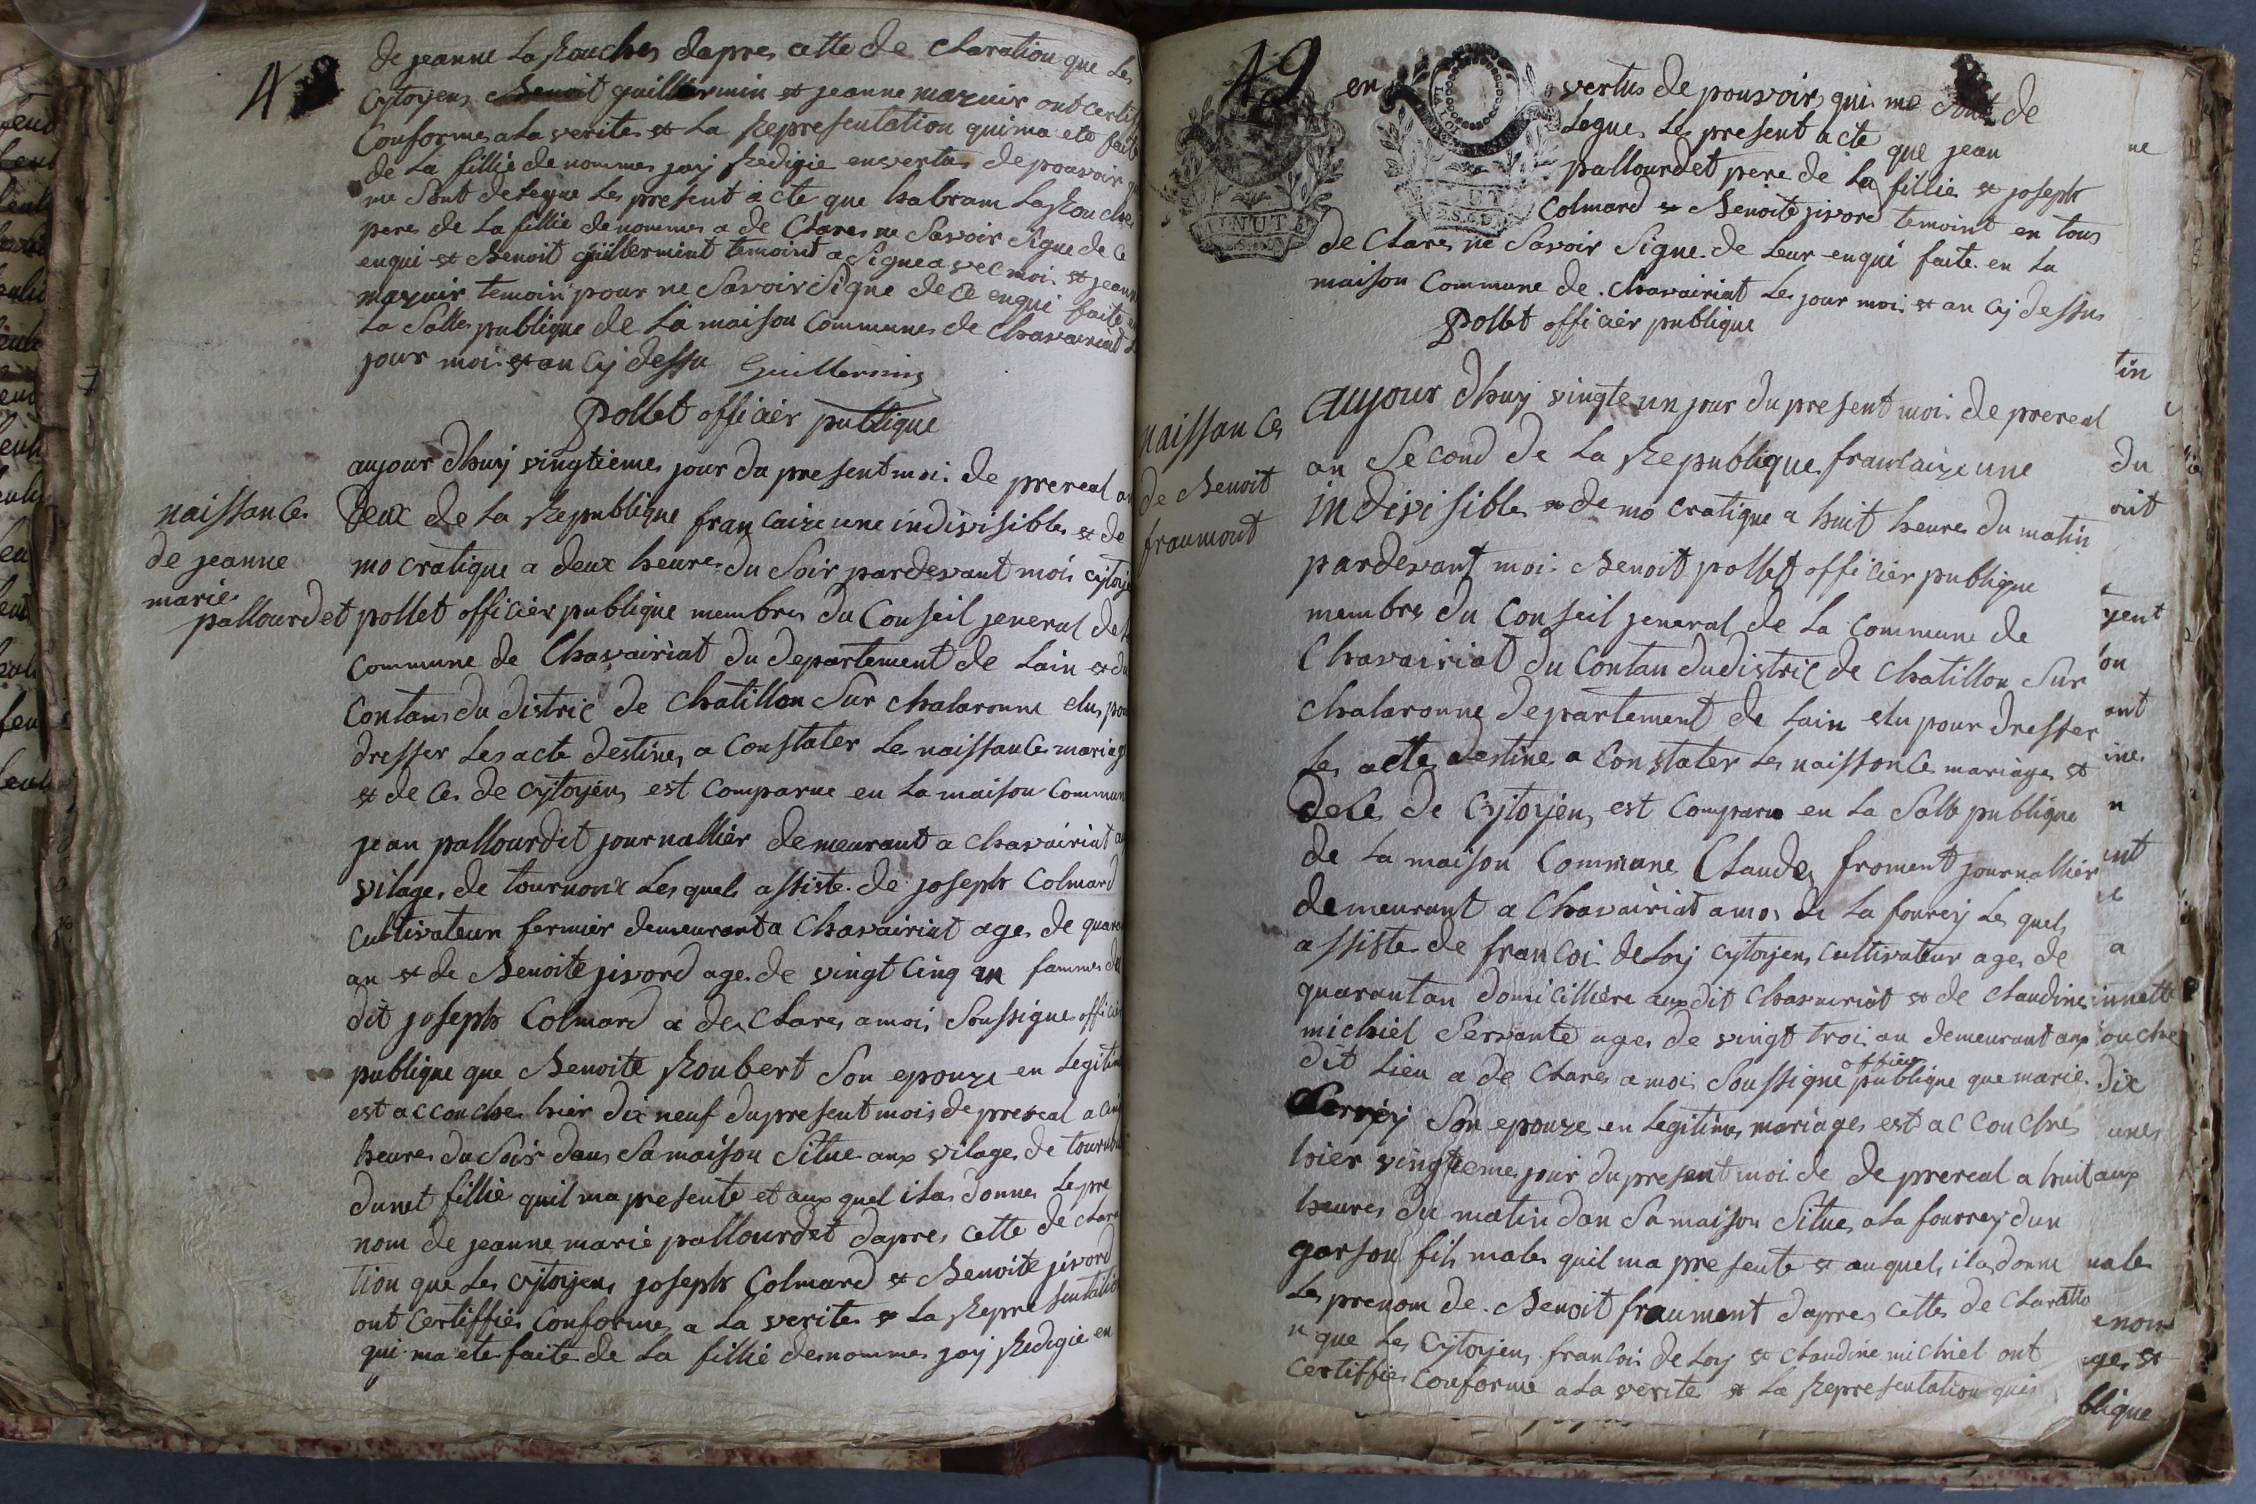 48
de jeanne La Rouches dapres cette de claration que Les
cytoyens Benoit guillermin et jeanne mazuir ont certif
Conforme a La verites et La Representation qui ma ete faite
de La fillie de nommes jay Redigie en vertus de pouvoir
me sont delegue Les present acte que habram La Rouche
peres de La fillie de nommes a de Clares ne Savoir Signe de Ce
enqui et Benoit guillermint temoint a Signe avec moi et jeanne
mazuir temoin pour ne Savoir Signe de Ce enqui faite en
La Salles publique de La maison Communes de Chavairiat Le
jour moi et an Cy dessu Guillermin
Pollet officièr publique
naissances
de jeanne
marie
pallourdet
aujour dhuy vingtiemes jour du present moi de prereal an
Deux de La Republique francaize une indivisibles et de
mo cratique a deux heures du Soir pardevant moi cytoye
pollet officièr publique membres du Conseil jeneral de La
Commune de Chavairiat du departement de Lain et du
Contans du distric de Chatillon Sur chalaronne elus pour
dresser Les acte destines a Constater Les naissances mariag
et de Ces de cytoyens est Comparue en La maison Commun
jean pallourdit journallièr demeurant a Chavairiat au
vilages de tournoux Les quels assiste de joseph Colmard
Cultivateur fermier demeurant a Chavairiat ages de quaran
an et de Benoite jivord age de vingt Cinq an fammes du
dit joseph Colmard a de Clares a moi Soussigne officièr
publique que Benoite Roubert Son epouze en Legitim
est accouches hièr dix neuf du present mois de prereal a Cin
heures du Soir dans Sa maison Situe aux vilages de tournou
dunet fillie quil ma presente et aux quel il a donnes Le pre
nom de jeanne marie pallourdet dapres cette de clara
tion que Les cytoyens joseph Colmard et Benoite jivord
ont Certiffies Conformes a La verites et La Representatio
qui ma ete faite de La fillié denommes jay Redigie en
49
en vertus de pouvoirs qui me Sont de
Legues Les present acte que jean
pallourdet pere de La fillie et joseph
Colmard et Benoite jivord temoint en tous
de Clares ne Savoir Signe de Leur enqui faite en La
maison Commune de Chavairiat Les jour moi et an Cy dessus
Pollet officièr publique
naissances
de Benoit
fraumont
aujour dhuy vingte un jour du present moi de prereal
an Second de La Republique francaize une
indivisibles et de mo cratique a huit heures du matin
pardevant moi Benoit pollet officièr publique
membres du Conseil jeneral de La Commune de
Chavairiat du Contan du distric de Chatillon Sur
Chalaronne departement de Lain elu pour dresser
Les actes destines a Constater Les naissances mariages et
de Ces de Cytoyens est Comparu en La Salle publique
de La maison Commune Claudes froment journallièr
demeurant a Chavairiat a mos de La fourey Les quels
assiste de francoi deloy cytoyens Cultivateur ages de
quarant an domicillière aux dit Chavairiat et de Claudine
michiel Servante ages de vingt troi an demeurant aux
dit Lieu a de Clares a moi Soussigne officièr publique que marie
Son epouze en Legitimes mariages est accouchés
hier vingtieme jour du present moi de de prereal a huit
heures du matin dan Sa maison Situes a La fourrey dun
garson fils males quil ma presente et auquels il a donne
Les prenom de Benoit fraumont dapres cettes de Claratio
n que Les Cytoyens francois de Loy et Claudine michiel ont
Certiffies Conforme a La verite et La Representation qui
ne
tin
du
ont
yent
ou
ont
ines
n
ent
a
innette
ouche
dix
unes
aux
males
enom
ges et
blique